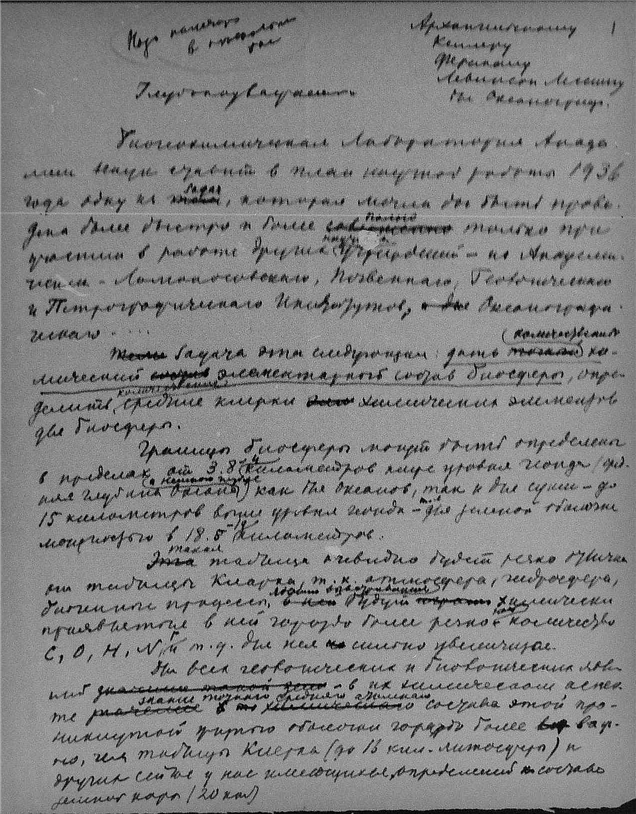 Надо напечатать
в
Архангельскому
1
Келлеру
Ферсману
Левинсон Лессингу
Глубокоуважаем
Биогеохимическая Лаборатория Академии
Наук ставит в план научной работы 1936
года одну из задач, которая могла бы быть прове-
дена более быстро и более полно только при
участии в работе других учреждений – из Академи-
ческих – Ломоносовскаго, Почвеннаго, Геологическаго
и Петрографическаго Институтов, Океанографи-
ческаго ....
Задача эта следующая: дать (количественно) хи-
мический элементарный состав биосферы, опре-
делить количественно средние кларки химических элементов
для биосферы.
Границы биосферы могут быть определены
в пределах от 3.8 километров ниже уровня геоида (сред-
няя глубина Океана) как для океанов, так и для суши – до
15 километров выше уровня геоида – для земной оболочки
мощностью в 18.8 километров.
такая таблица очевидно будет резко отлична
от таблицы Кларка, т.к. атмосфера, гидросфера,
биогенные процессы, будут химически
в ней гораздо более резко – количество
С, О, Н, N и т.д. для нея сильно увеличится.
Для всех геологических и биологических явле-
ний в их химическом аспек-
те знание точного среднего химического состава этой про-
никнутой жизнью оболочки гораздо более важ-
но, чем таблицы Кларка (до 16 кил. литосферы) и
других сейчас у нас имеющихся определений состава
земной коры (20 кил)